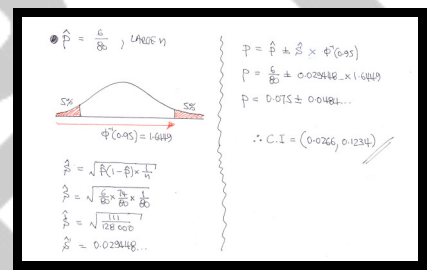 p̂ = 6/80 , LARGE n
5%
5%
Φ⁻¹(0.95) = 1.6449
ŝ = √(p̂(1-p̂)×1/n)
ŝ = √(6/80 × 74/80 × 1/80)
ŝ = √(111/128000)
ŝ = 0.029448...
p = p̂ ± ŝ × Φ⁻¹(0.95)
p = 6/80 ± 0.029448...×1.6449
p = 0.075 ± 0.0484...
∴ C.I = (0.0266, 0.1234)